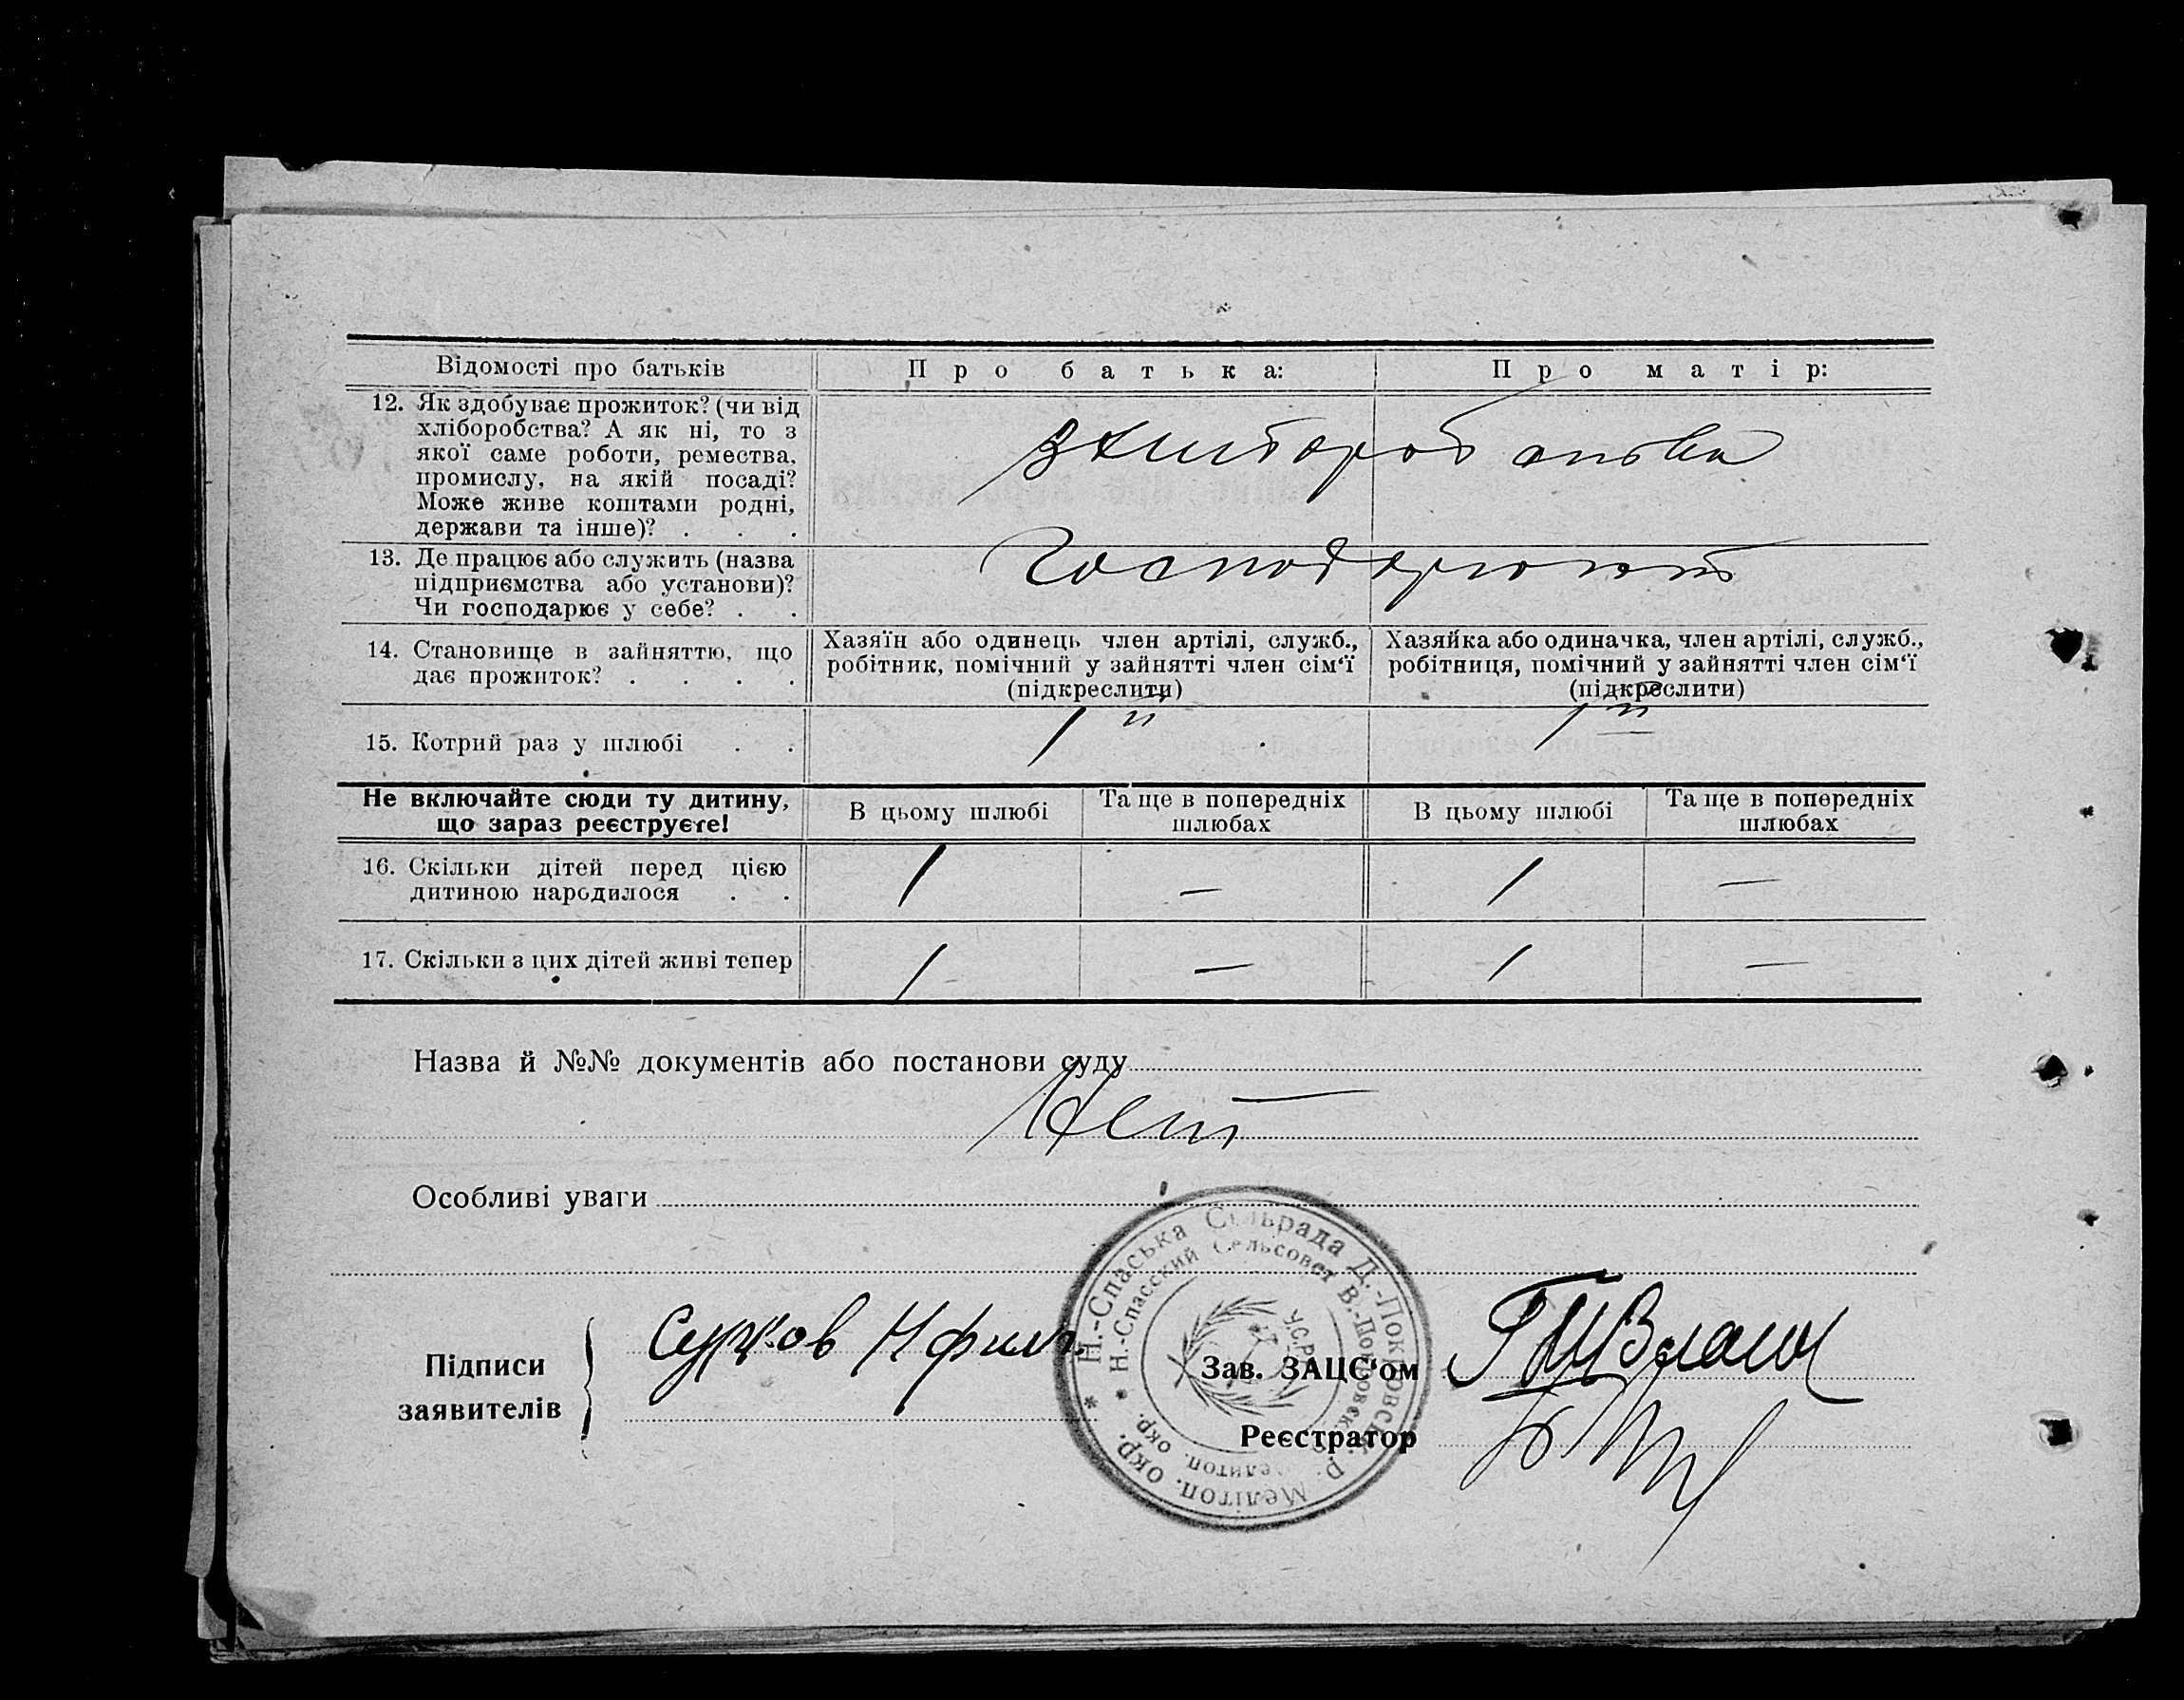 Відомості про батьків
Про батька:
Про матір:
12. Як здобуває прожиток? (чи від
хліборобства? А як ні, то з
якої саме роботи, ремества,
промислу, на якій посаді?
Може живе коштами родні,
держави та інше)? . . .
з хліборобства
13. Де працює або служить (назва
підприємства або установи)?
Чи господарює у себе? . .
Господарюють
14. Становище в зайняттю, що
дає прожиток? . . . .
Хазяїн або одинець член артілі, служб.,
робітник, помічний у зайнятті член сім‘ї
(підкреслити)
Хазяйка або одиначка, член артілі, служб.,
робітниця, помічний у зайнятті член сім‘ї
(підкреслити)
15. Котрий раз у шлюбі . .
1й
1й
Не включайте сюди ту дитину,
що зараз реєструєте!
В цьому шлюбі
Та ще в попередніх
шлюбах
В цьому шлюбі
Та ще в попередніх
шлюбах
16. Скільки дітей перед цією
дитиною народилося . .
1 — 1 —
17. Скільки з цих дітей живі тепер
1 — 1 —
Назва й №№ документів або постанови суду
Нет
Особливі уваги
Н.-Спаська Сільрада Д.-Покровськ. р. Мелітоп. окр.
Н.-Спасский Сельсовет В.-Покровск. р. Мелитоп. окр.
У.С.Р.Р.
Підписи
заявителів
Сурков
Зав. ЗАЦС‘ом
Реєстратор